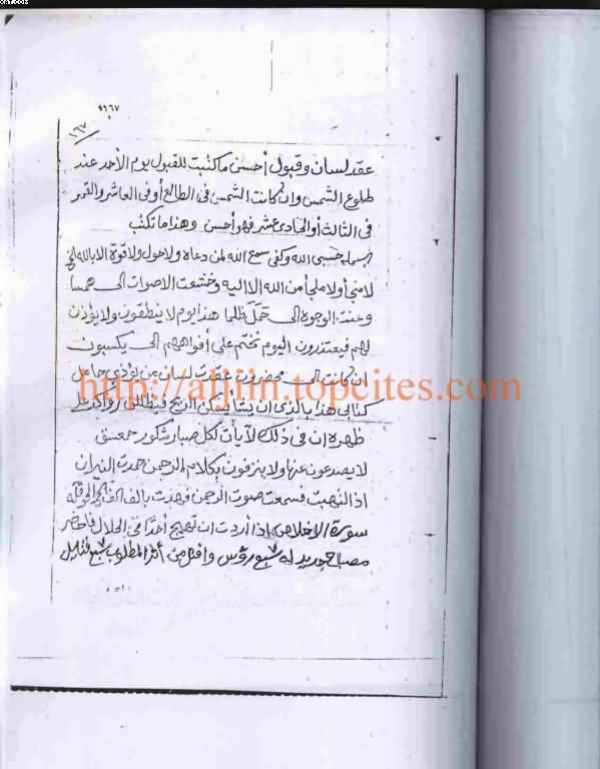 ٩١٦٧
١٦٧
عقد لسان وقبول أحسن ما كتبت للقبول يوم الأحد عند
طلوع الشمس وان كانت الشمس فى الطالع أو فى العاشر والقمر
فى الثالث أو الحادى عشر فهو أحسن وهذا ما تكتب
البسملة حسبى الله وكفى سمع الله لمن دعاه ولا حول ولا قوة الا بالله
لا منجى ولا ملجأ من الله الا اليه وخشعت الاصوات الى همسا
وعنت الوجوه الى حمل ظلما هذا يوم لا ينطقون ولا يؤذن
لهم فيعتذرون اليوم نختم على أفواههم الى يكسبون
ان كانت الى محضرون عقدت لسان من يؤذى حامل
كتابى هذا بالذى ان يشأ يسكن الريح فيظللن رواكد على
ظهره ان فى ذلك لآيات لكل صبار شكور حمعسق
لا يصدعون عنها ولا ينزفون بكلام الرحمن خمدت النيران
اذا التهبت فسمعت صوت الرحمن فهدت بالف الف
سورة الإخلاص اذا أردت ان تهيج أحدا فى الحلال فاحضر
مصباح جديد له سبع رؤس من أثر المطلوب سبع فتايل
http://aljiin.topcites.com